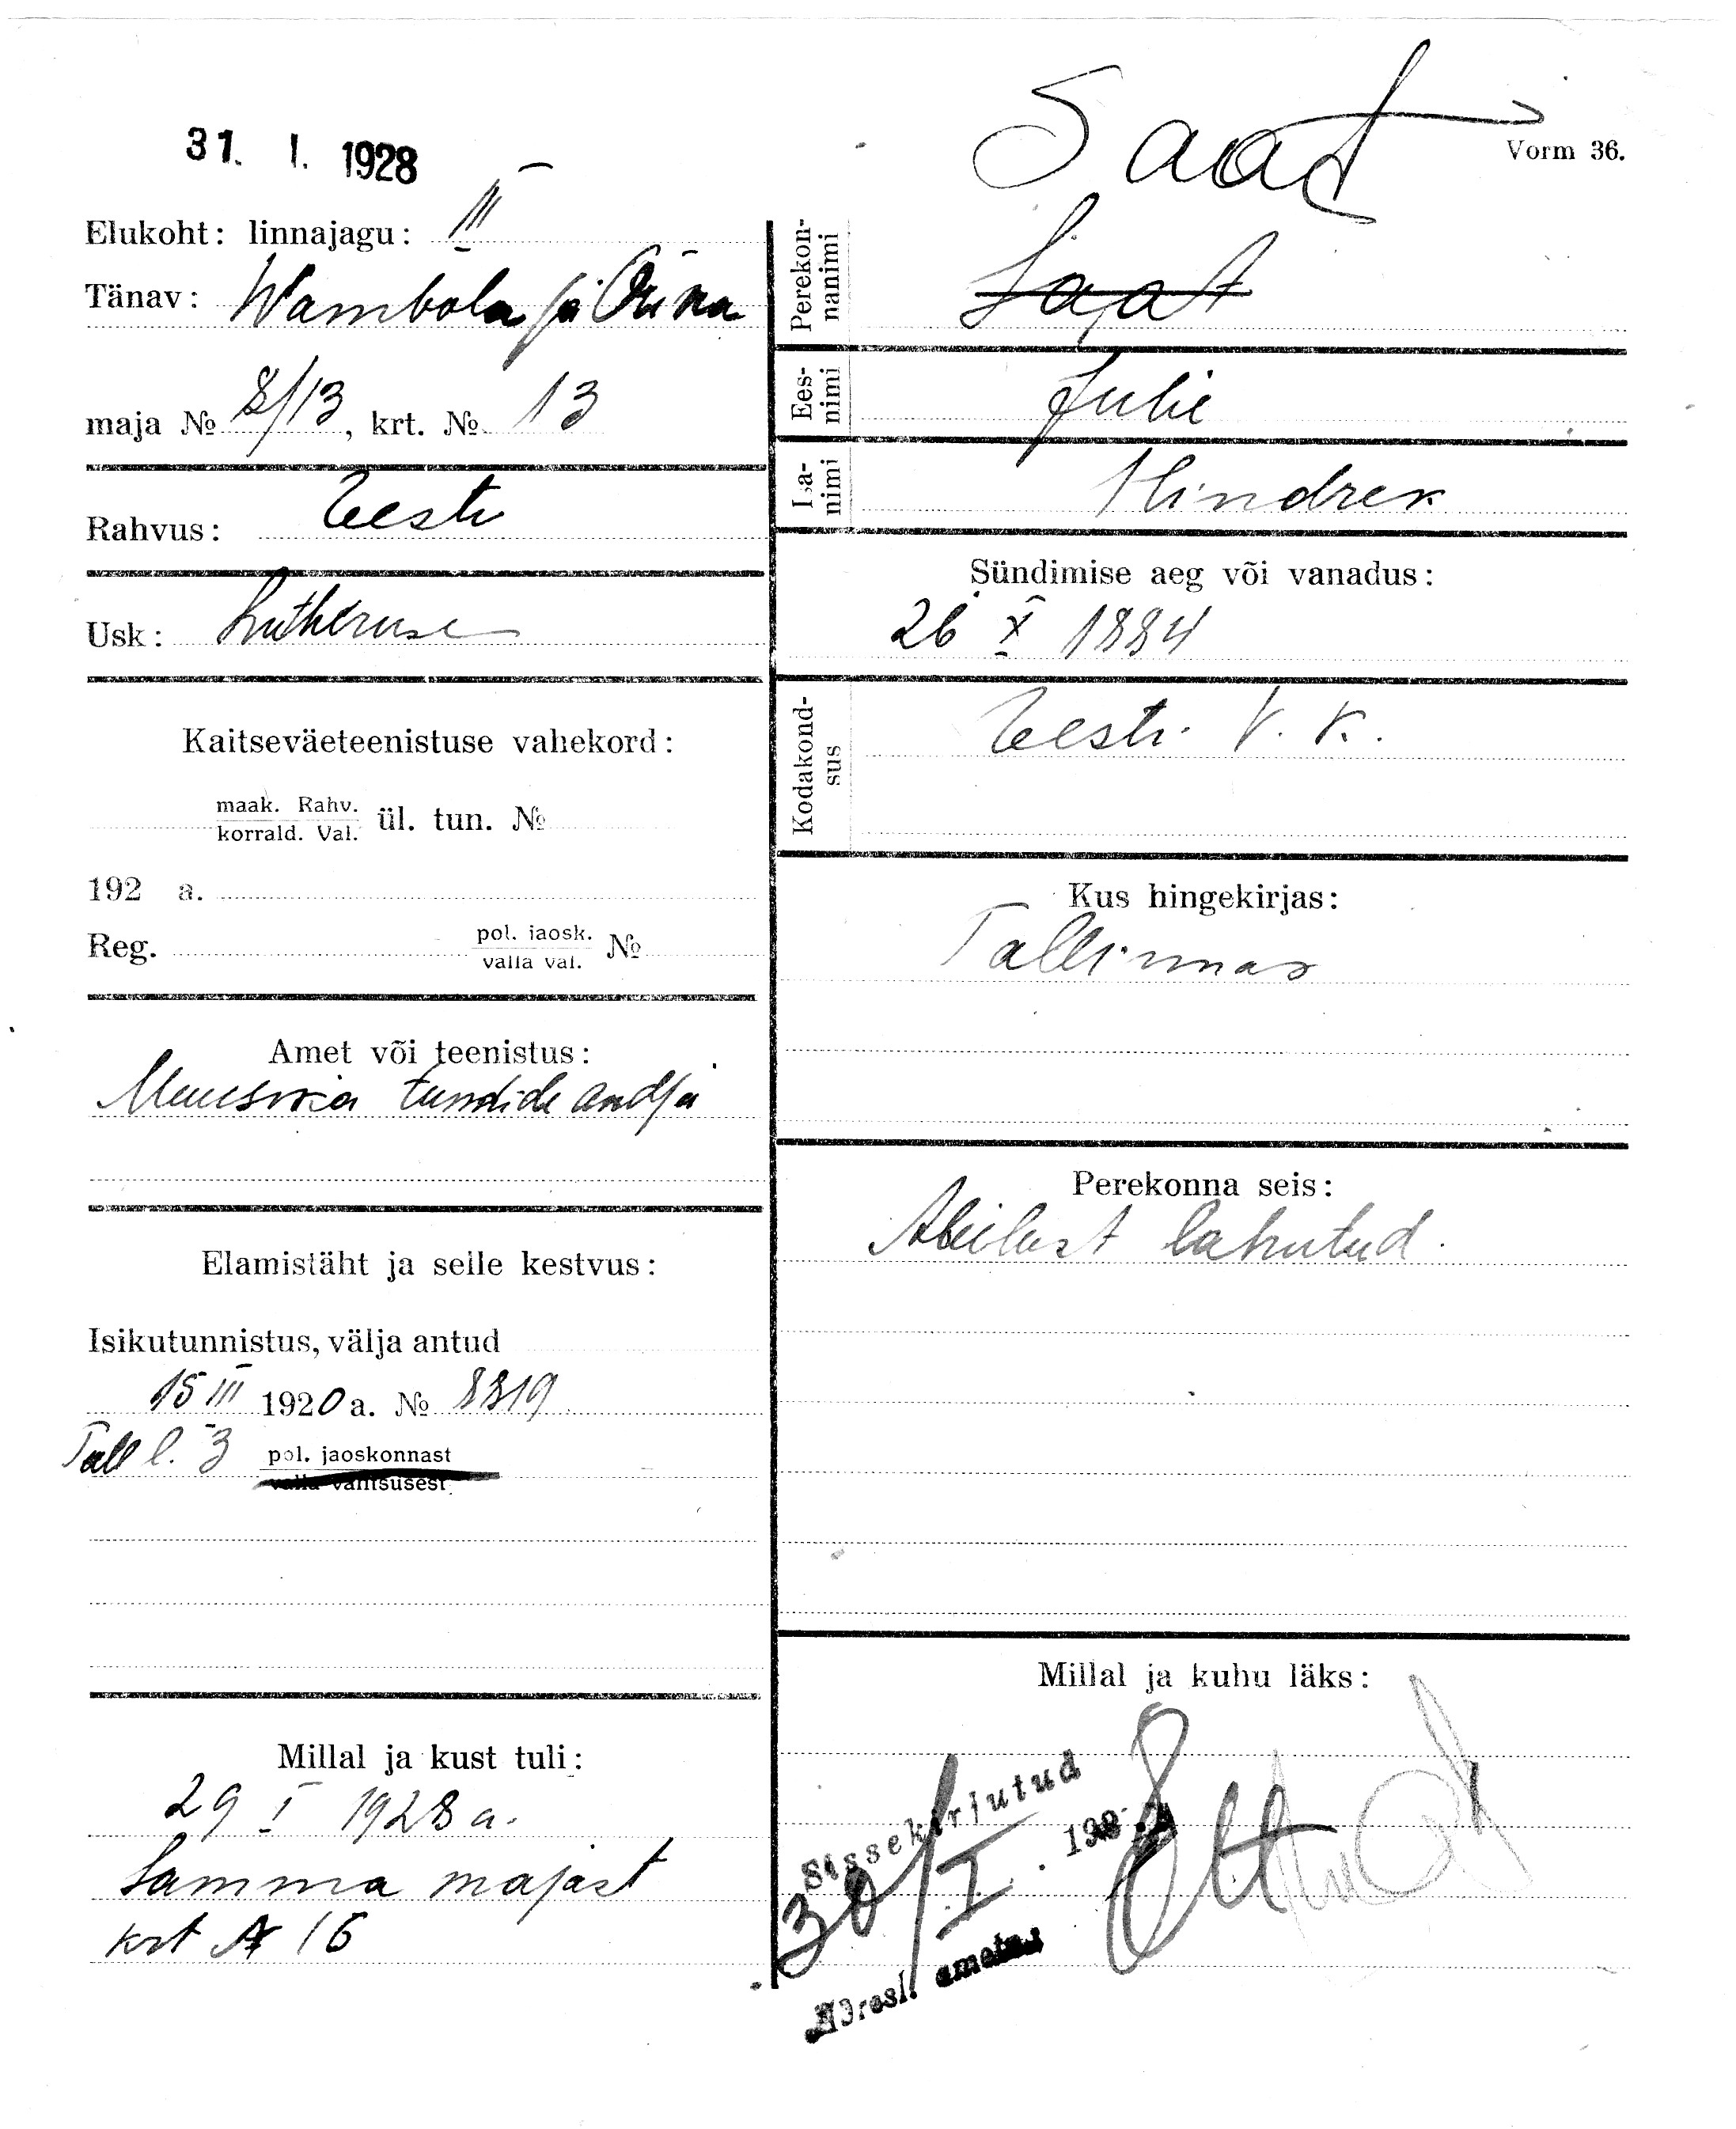 31. I. 1928
Saat
Vorm 36.
Elukoht: linnajagu: III
Tänav: Wambola ja
maja № 8/13, krt. № 13
Rahvus: Eesti
Usk: Lutheruse
Kaitseväeteenistuse vahekord:
maak. Rahv.
korrald. Val.
ül. tun. №
192 a.
Reg. pol. jaosk. №
valla val.
Amet või teenistus:
Muusika tundide andja
Elamistäht ja selle kestvus:
Isikutunnistus, välja antud
15 III 1920 a. № 8319
Tall l. 3 pol. jaoskonnast
valla valitsusest
Millal ja kust tuli:
29 I 1928 a.
Samma majast
krt № 16
Perekon-
nanimi
Saat
Ees-
nimi
Julie
Isa-
nimi
Hindrek
Sündimise aeg või vanadus:
26 X 1884
Kodakond-
sus
Eesti V. K.
Kus hingekirjas:
Tallinnas
Perekonna seis:
Abielust lahutud.
Millal ja kuhu läks:
Sissekirjutud
30/I. 192
Adresl. ametn.